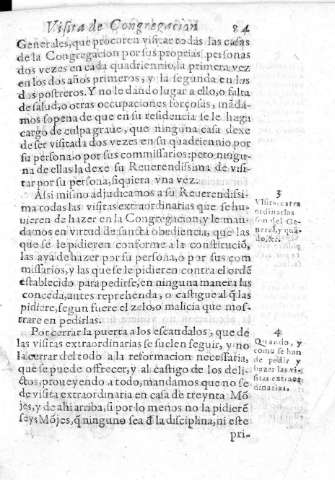 Visita de Congregacion
84
Generales, que procuren visitar todas las casas
de la Congregacion por sus propias personas
dos vezes en cada quadriennio, la primera vez
en los dos años primeros, y la segunda en los
dos postreros. Y no le dando lugar a ello, o falta
de salud, o otras occupaciones forçosas, mãda
mos so pena de que en su residencia se le haga
cargo de culpa graue, que ninguna casa dexe
de ser visitada dos vezes en su quadriennio por
su persona, o por sus commissarios: pero ningu
na de ellas la dexe su Reuerendissima de visi
tar por su persona, siquiera vna vez.
Assi mismo adjudicamos a su Reuerendissi-
ma todas las visitas extraordinarias que se hu-
uieren de hazer en la Congregacion, y le man-
damos en virtud de sancta obediencia, que las
que se le pidieren conforme a la constitucìõ,
las aya de hazer por su persona, o por sus com
missarios, y las que se le pidieren contra el ordẽ
establecido para pedirse, en ninguna manera las
conceda, antes reprehenda, o castigue al q̃ las
pidiere, segun fuere el zelo, o malicia que mos-
trare en pedirlas.
3
Visitas extra
ordinarias
son del Ge-
neral, y quã
do, &c.
Por cerrar la puerta a los escandalos, que de
las visitas extraordinarias se suelen seguir, y no
la cerrar del todo a la reformacion necessaria,
que se puede offrecer, y al castigo de los deli-
ctos, proueyendo a todo, mandamos que no se
de visita extraordinaria en casa de treynta Mõ
jes, y de ahi arriba, si por lo menos no la pidierẽ
seys Mõjes, q̃ ninguno sea d̃ la disciplina, ni este
pri-
4
Quando, y
como se han
de pedir y
hazer las vi-
sitas extraor-
dinarias.